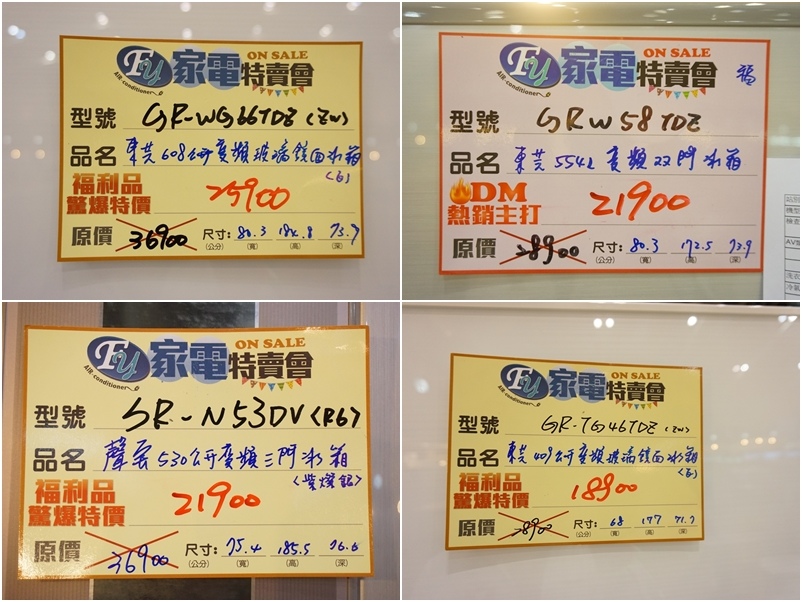 FY 家電特賣會 ON SALE
AIR-conditioner
型號 GR-WG66TDZ (ZW)
品名 東芝 608公升變頻玻璃鏡面冰箱
(白)
福利品
驚爆特價 25900
原價 36900 尺寸: 80.3 184.8 75.7
(公分) (寬) (高) (深)
FY 家電特賣會 ON SALE
AIR-conditioner
福
型號 GRW58TDZ
品名 東芝 554L 變頻双門冰箱
DM
熱銷主打 21900
原價 28900 尺寸: 80.3 172.5 73.9
(公分) (寬) (高) (深)
FY 家電特賣會 ON SALE
AIR-conditioner
型號 SR-N53DV (R6)
品名 聲寶 530公升變頻三門冰箱
(紫燦銀)
福利品
驚爆特價 21900
原價 36900 尺寸: 75.4 185.5 76.6
(公分) (寬) (高) (深)
FY 家電特賣會 ON SALE
AIR-conditioner
型號 GR-TG46TDZ (ZW)
品名 東芝 409公升變頻玻璃鏡面冰箱
(白)
福利品
驚爆特價 18900
原價 28900 尺寸: 68 177 71.7
(公分) (寬) (高) (深)